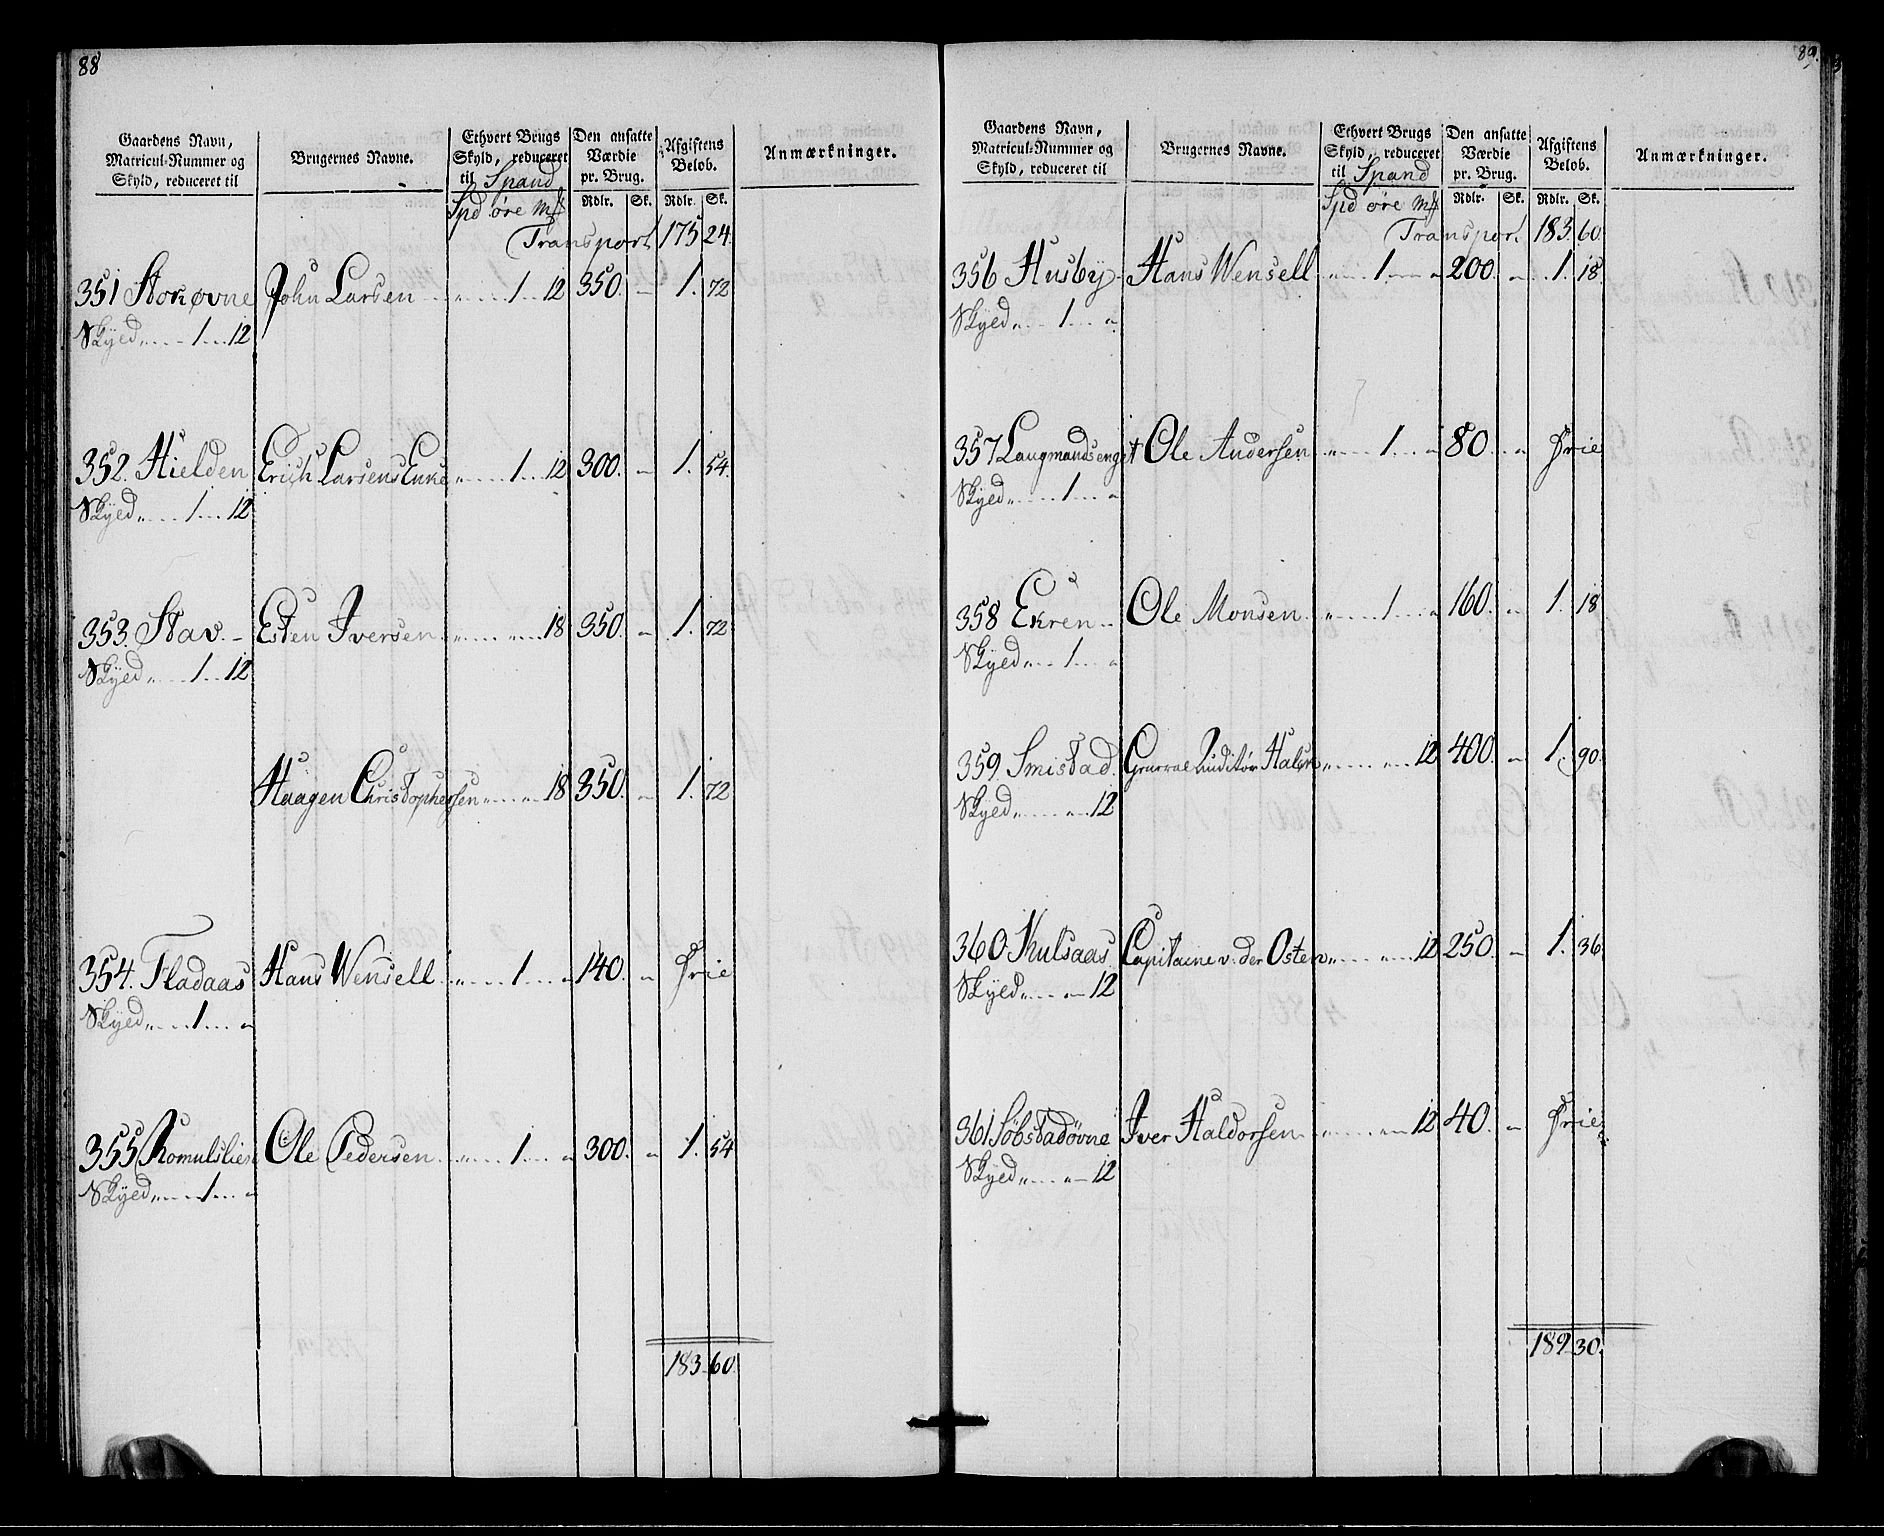 88
Gaardens Navn, Matricul-Nummer og Skyld, reduceret til
Brugernes Navne.
Ethvert Brugs Skyld, reduceret til Spand
Den ansatte Værdie pr. Brug.
Afgiftens Belob.
Anmærkninger.
Spd øre mƒ Rdlr. Sk. Rdlr. Sk.
Transport 175 24.
351 Storøvne John Larsen „ 1 12 350. - 1. 72
Skyed „ 1 12
352. Hielden Erich Larsens Enke „ 1 12 300. - 1. 54.
Skyed „ 1 12
353. Stav. - Esten Iversen „ „ 18 350. - 1. 72
Skyed „ 1 12
Haagen Christophersen „ „ 18 350. - 1. 72
354. Fladaas Hans Wensell „ 1 „ 140. „ Frie
Skyed „ 1 „
355 Romulslien Ole Pedersen „ 1 „ 300. „ 1. 54
Skyed „ 1 „
183 60.
89.
Gaardens Navn, Matricul-Nummer og Skyld, reduceret til
Brugernes Navne.
Ethvert Brugs Skyld, reduceret til Spand
Den ansatte Værdie pr. Brug.
Afgiftens Belob.
Anmærkninger.
Spd øre mƒ Rdlr. Sk. Rdlr. Sk.
Transport 183. 60.
356 Husby Hans Wensell „ 1 „ 200. - 1. 18.
Skyed „ 1 „
357 Laugmandsenget Ole Andersen „ 1 „ 80 „ Frie
Skyed „ 1 „
358 Ekren - Ole Monsen „ 1 „ 160. - 1. 18
Skyed „ 1 „
359. Smistad. General Auditør Halsen „ „ 12 400. - 1. 90.
Skyed „ „ 12
360. Kulsaas Capitaine v. der Osten „ „ 12 250. - 1. 36.
Skyed „ „ 12
361 Søbstadøvne Iver Haldorsen „ „ 12 40. - Frie
Skyed „ „ 12
189 30.